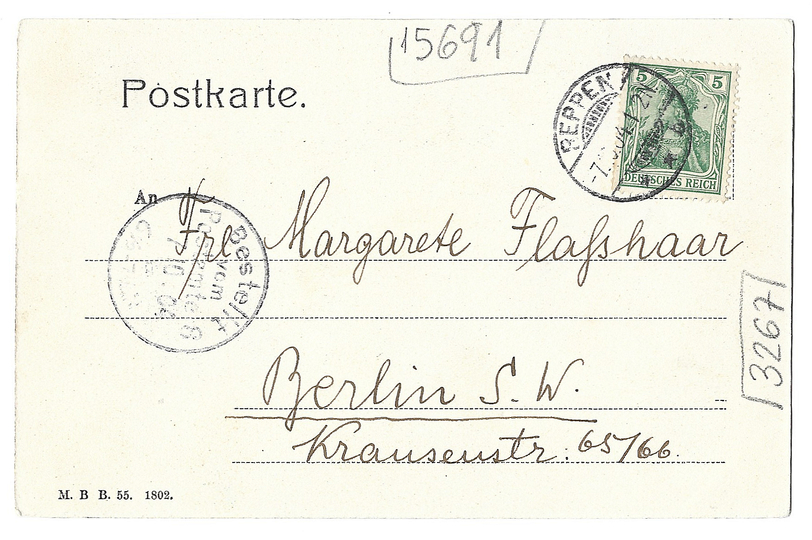 15691
Postkarte.
5 5
DEUTSCHES REICH
REPPEN
An
Frl Margarete Flaßshaar
Bestellt
vom
Postamte
3267
Berlin S. W.
Krausenstr. 65/66.
M. B B. 55. 1802.